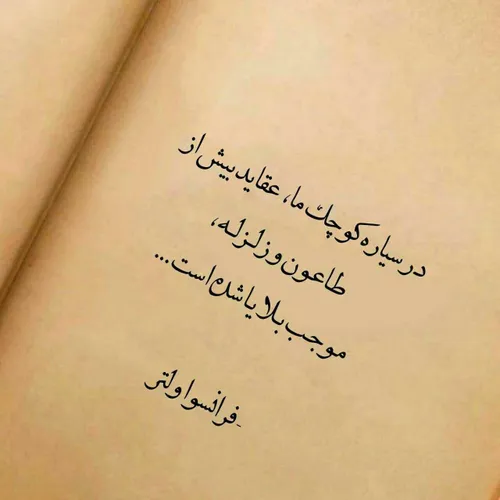 در سیاره کوچک ما، عقاید بیش از
طاعون و زلزله،
موجب بلایا شده است...
فرانسوا ولتر